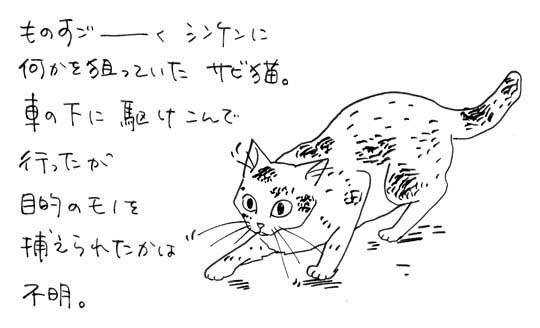 ものすご――く シンケンに
何かを狙っていた サビ猫。
車の下に 駆けこんで
行ったが
目的のモノを
捕えられたかは
不明。